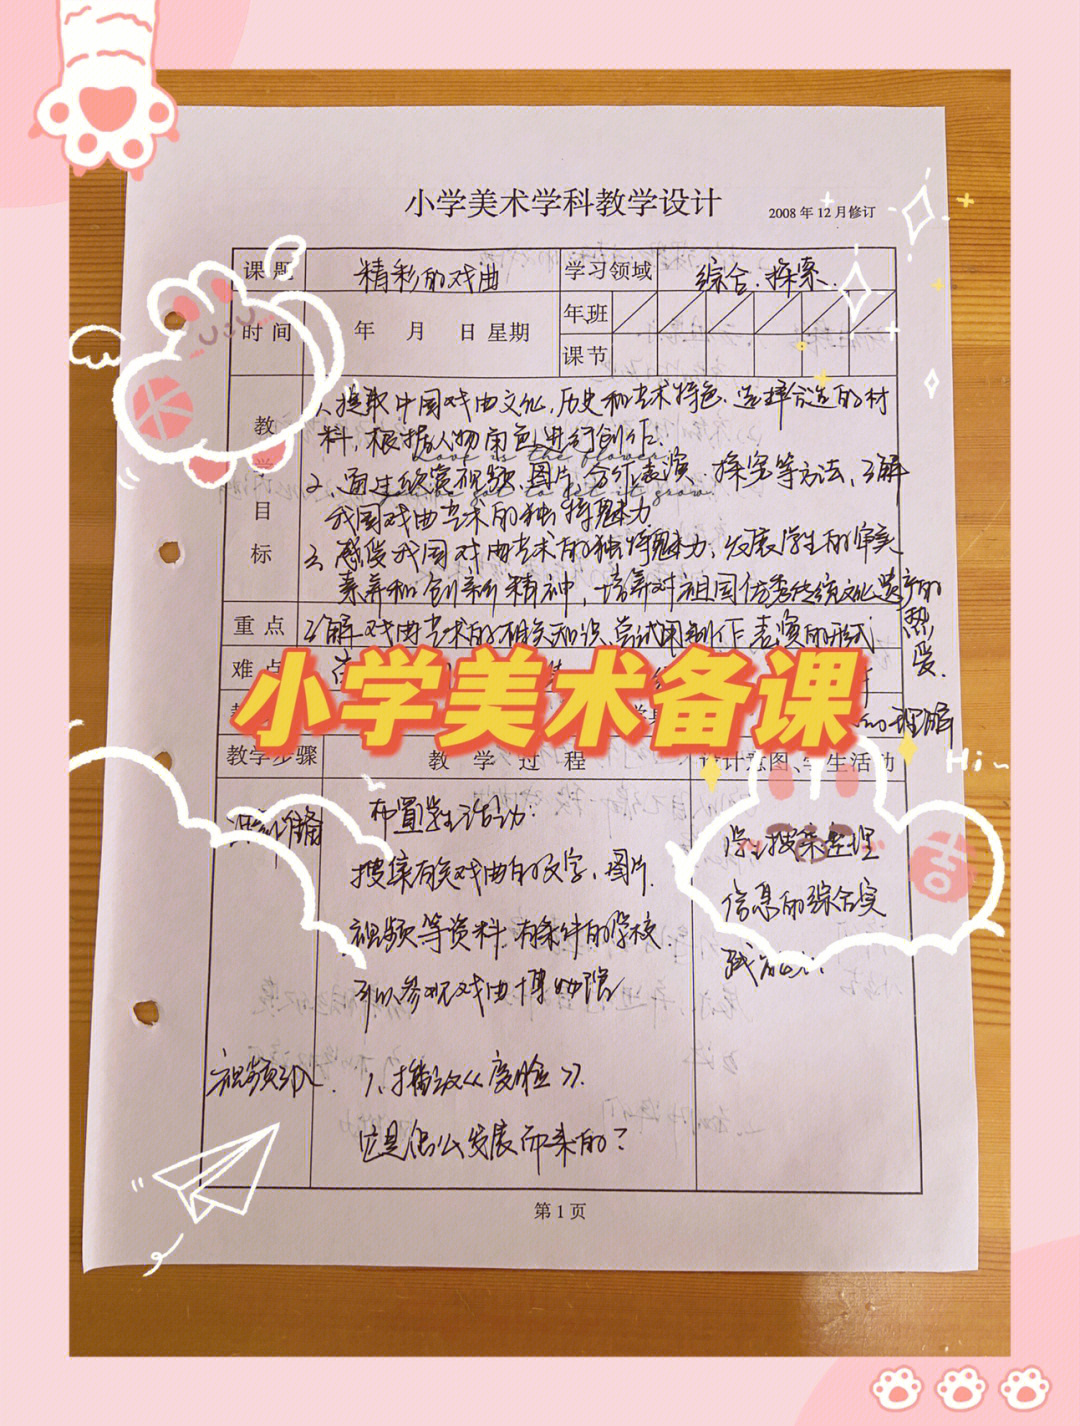 小学美术学科教学设计
2008 年 12 月修订
课题 精彩的戏曲 学习领域 综合.探索.
时间 年 月 日 星期 年班
课节
教学目标
1、提取中国戏曲文化,历史和艺术特色.选择合适的材
料,根据人物角色进行创作.
Love is the flower
2、通过欣赏视频、图片、分析表演、探究等方法,了解
you've got to let it grow.
我国戏曲艺术的独特魅力
3、感受我国戏曲艺术的独特魅力,发展学生的审美
素养和创新精神,培养对祖国优秀传统文化遗产的
热爱.
重点 了解戏曲艺术的相关知识,尝试用制作、表演的形式
难点
小学美术备课
的理解
教学步骤 教 学 过 程 设计意图、学生活动
Hi~
课前准备 布置学生活动:
搜集有关戏曲的文字、图片.
视频等资料.有条件的学校
可以参观戏曲博物馆
学生搜集整理
信息的综合实
践能力.
吉
视频引入 1、播放《变脸》.
它是怎么发展而来的?
第 1 页